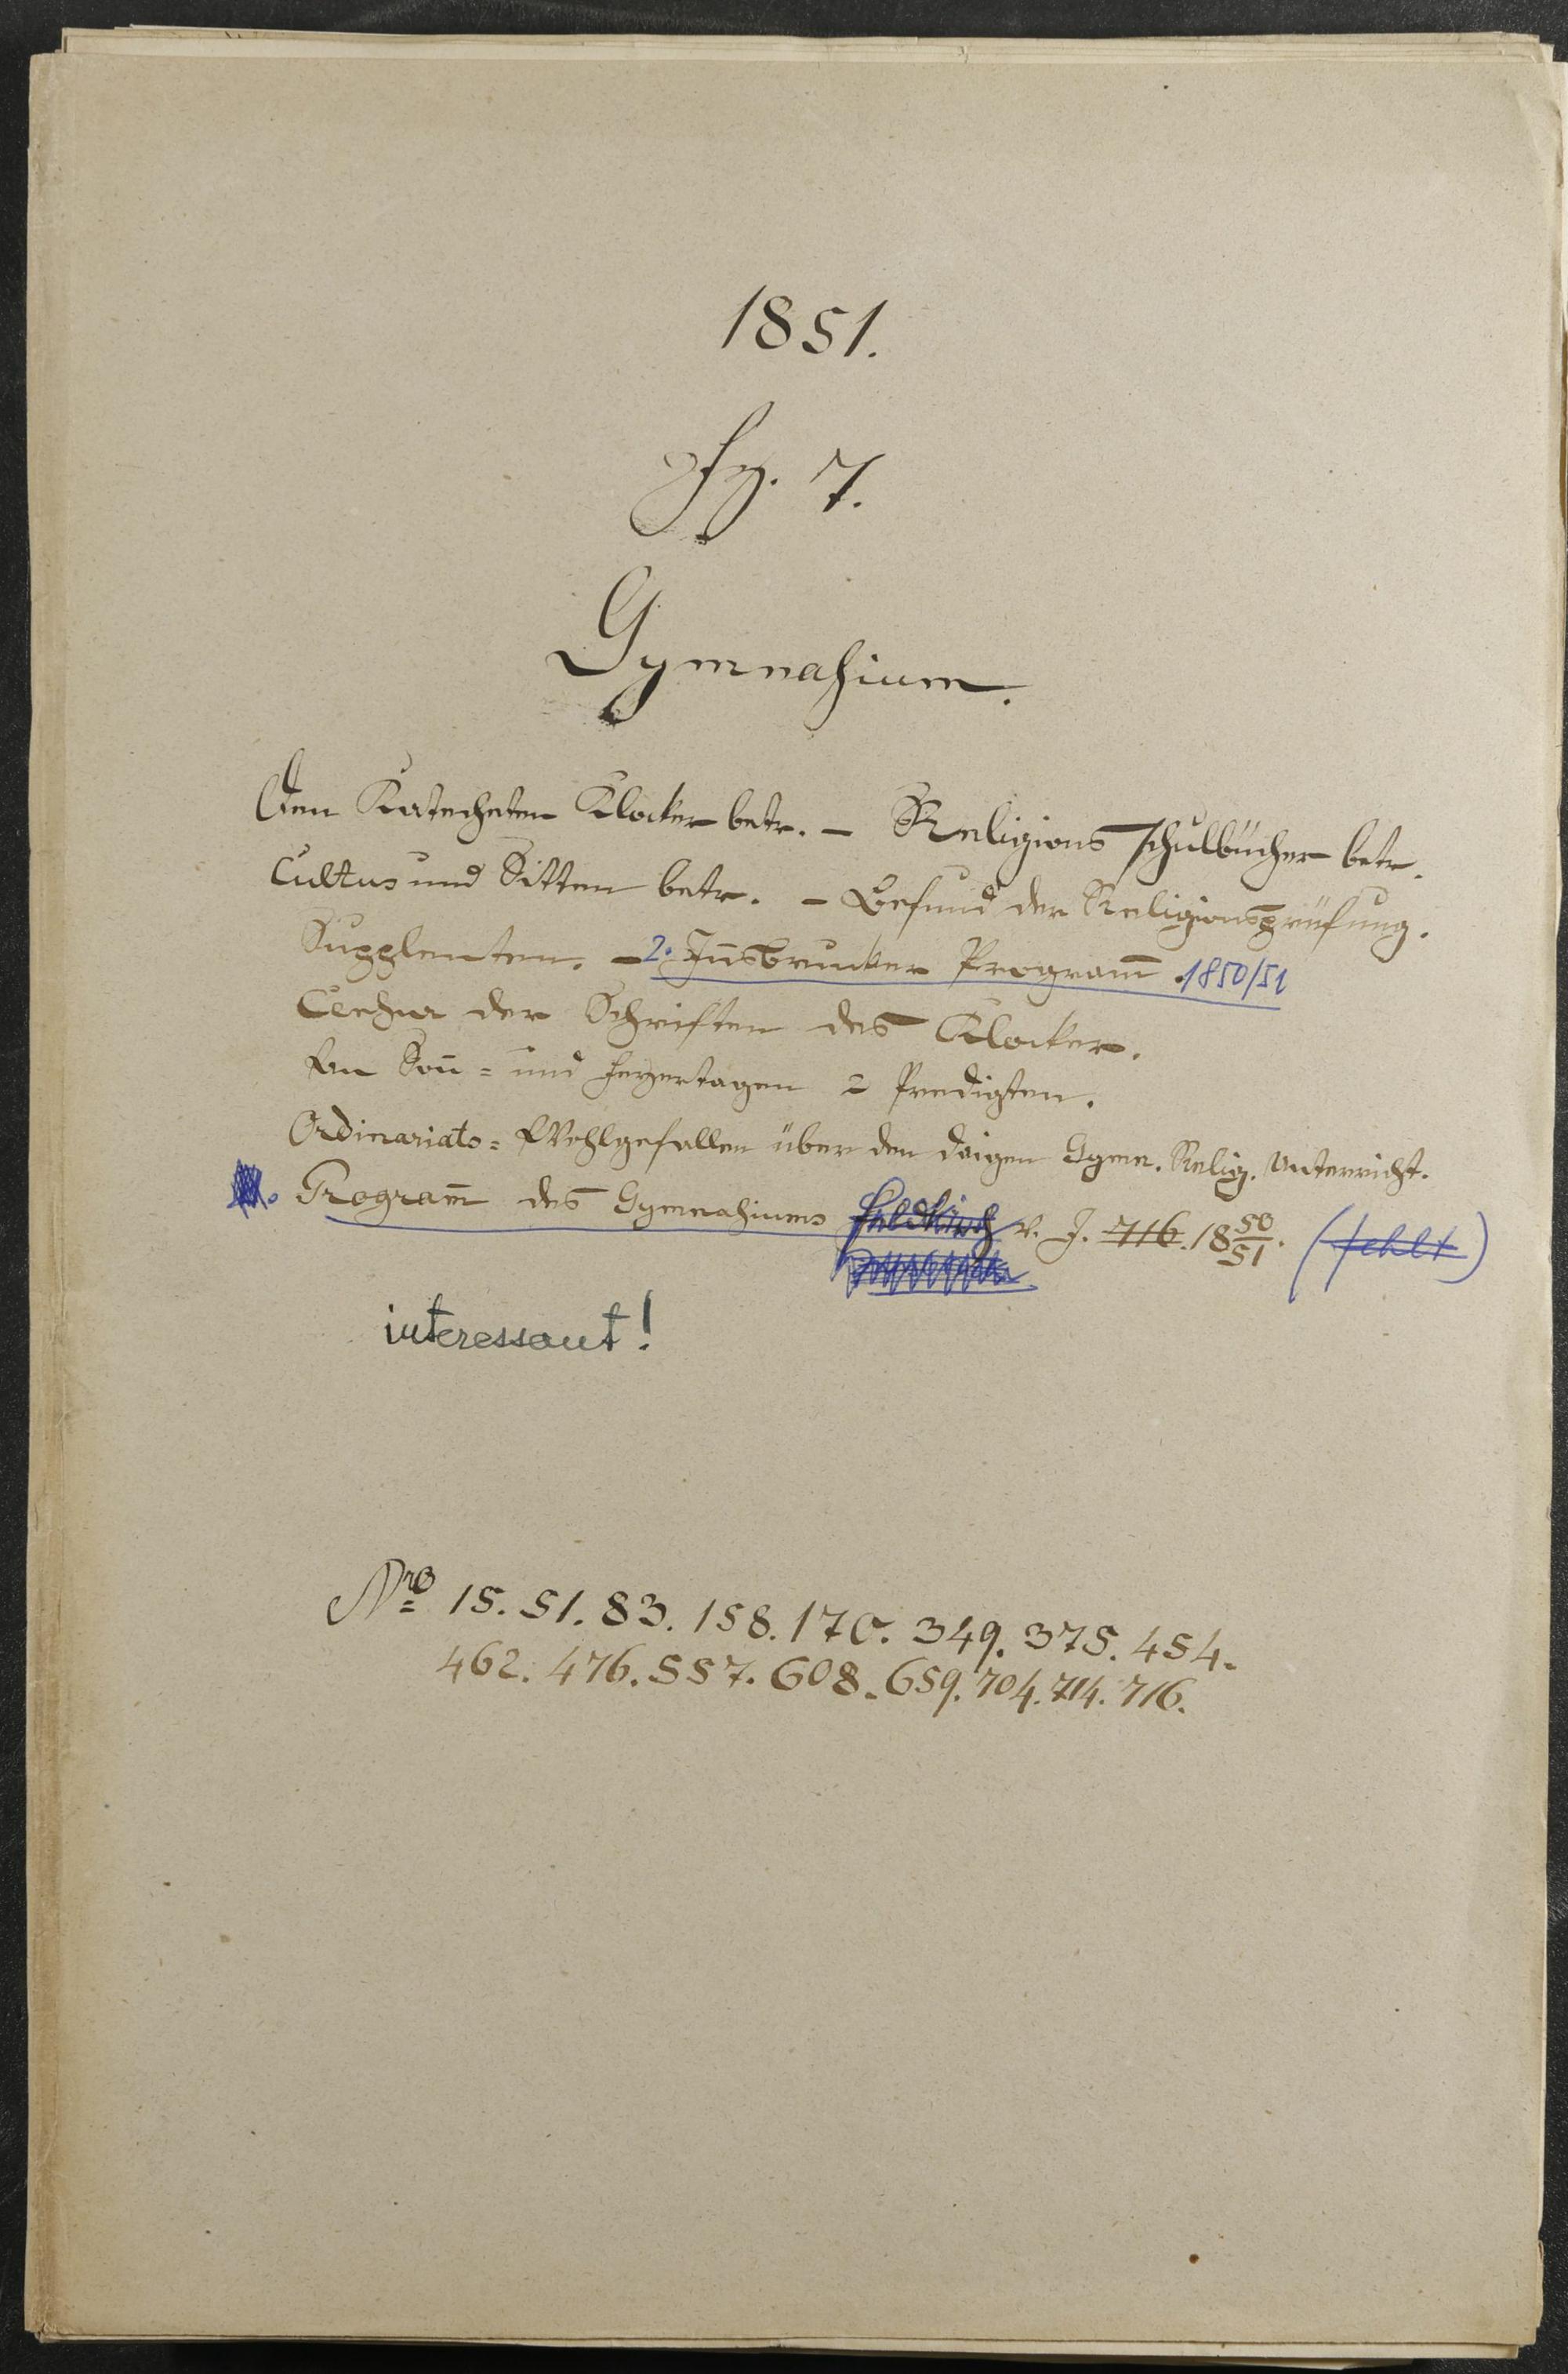 1851.
Fz. 7.
Gymnasium.
Den Katecheten Klocker betr. – Religionsschulbücher betr.
Cultus und Sitten betr. – Befund der Religionsprüfung.
Supplenten. – 2. Iñsbrucker Program̄ 1850/51
Censur der Schriften des Klocker.
An Soñ= und Feyertagen 2 Predigten.
Ordinariats=Wohlgefallen über den dsigen Gymn. Relig. Unterricht.
Program̄ des Gymnasiums Feldkirch v. J. 716. 18 50/51. (fehlt)
interessant!
Nro 15. 51. 83. 158. 170. 349. 375. 454.
462. 476. 557. 608. 659. 704. 714. 716.